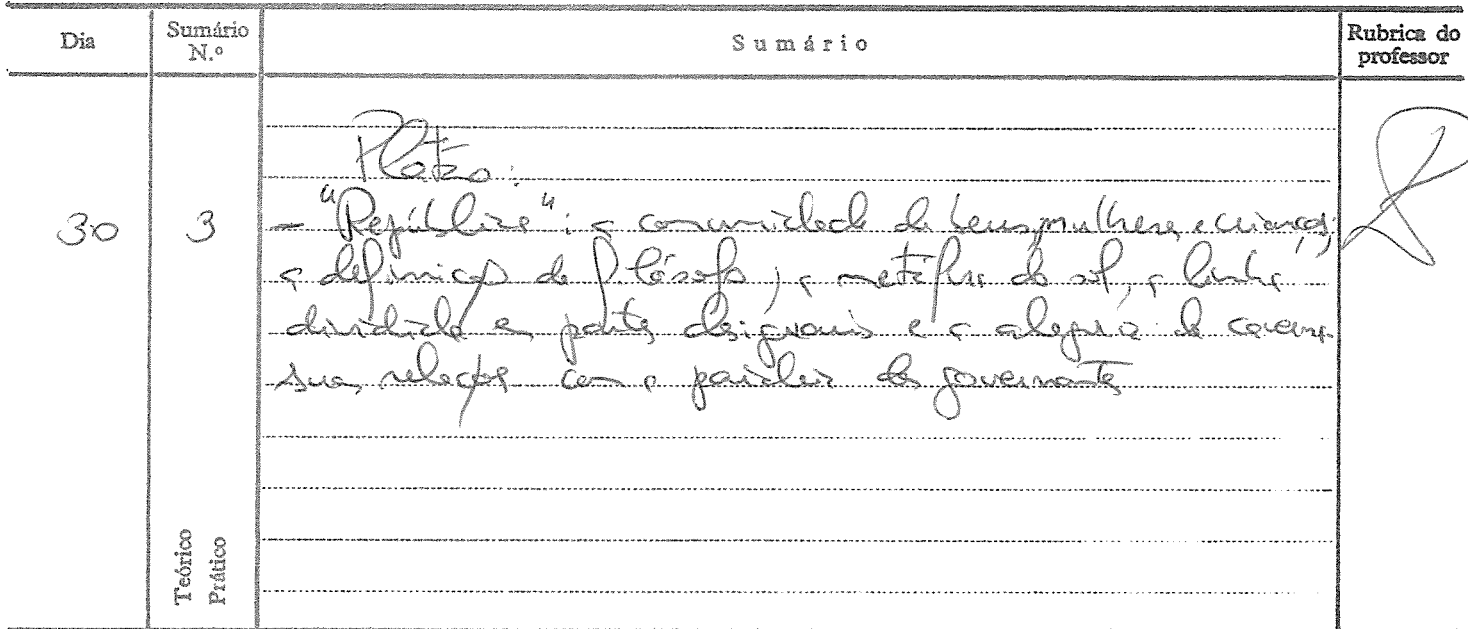 Dia
Sumário N.º
Sumário
Rubrica do professor
30
3
Platão:
- "República": a comunidade de bens, mulheres e crianças;
a definição de filósofo; a metáfora do sol, a linha
dividida em partes desiguais e a alegoria da caverna.
Suas relações com a paideia dos governantes
Teórico
Prático